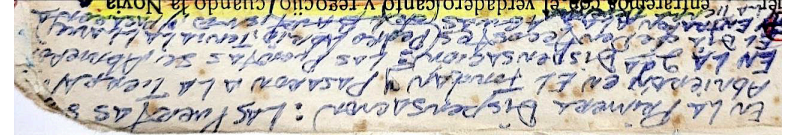 EN LA PRIMERA DISPENSACION: LAS PUERTAS S
ABRIERON EN EL JORDAN Y PASARON A LA TIERRA
EN LA 2da DISPENSACION LAS PUERTAS SE ABRIERON
EL DIA DE PENTECOSTES (PEDRO ABRIO, TENIA LA LLAVE)
entraremos con el verdadero canto y regocijo cuando la Novia